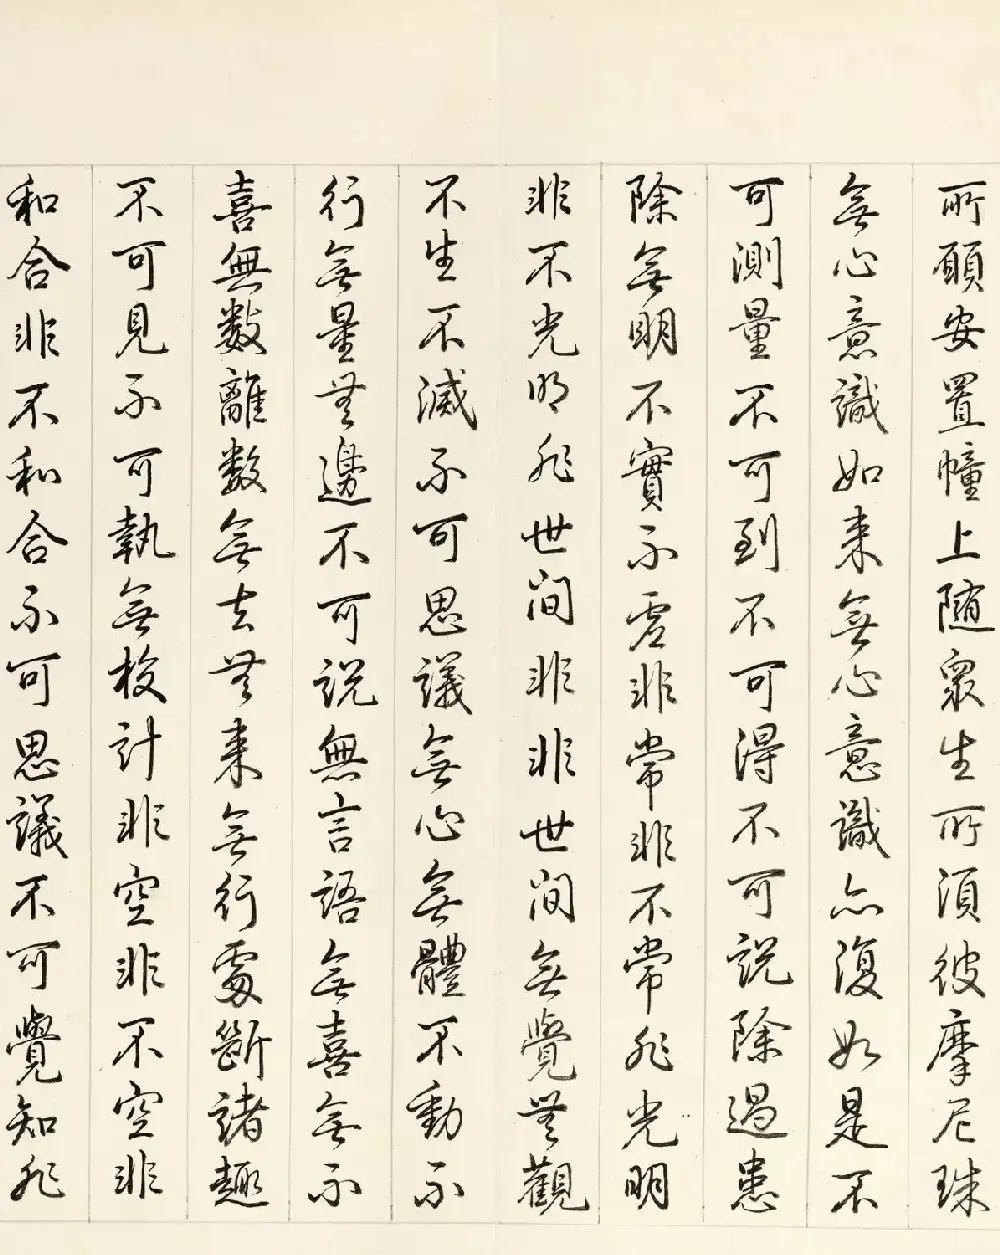 所願安置幢上隨衆生所須彼摩尼珠
無心意識如来無心意識亦復如是不
可測量不可到不可得不可説除過患
除無明不實不虚非常非不常非光明
非不光明非世間非非世間無覺無觀
不生不滅不可思議無心無體不動不
行無量無邊不可説無言語無喜無不
喜無數離數無去無来無行處斷諸趣
不可見不可執無校計非空非不空非
和合非不和合不可思議不可覺知非